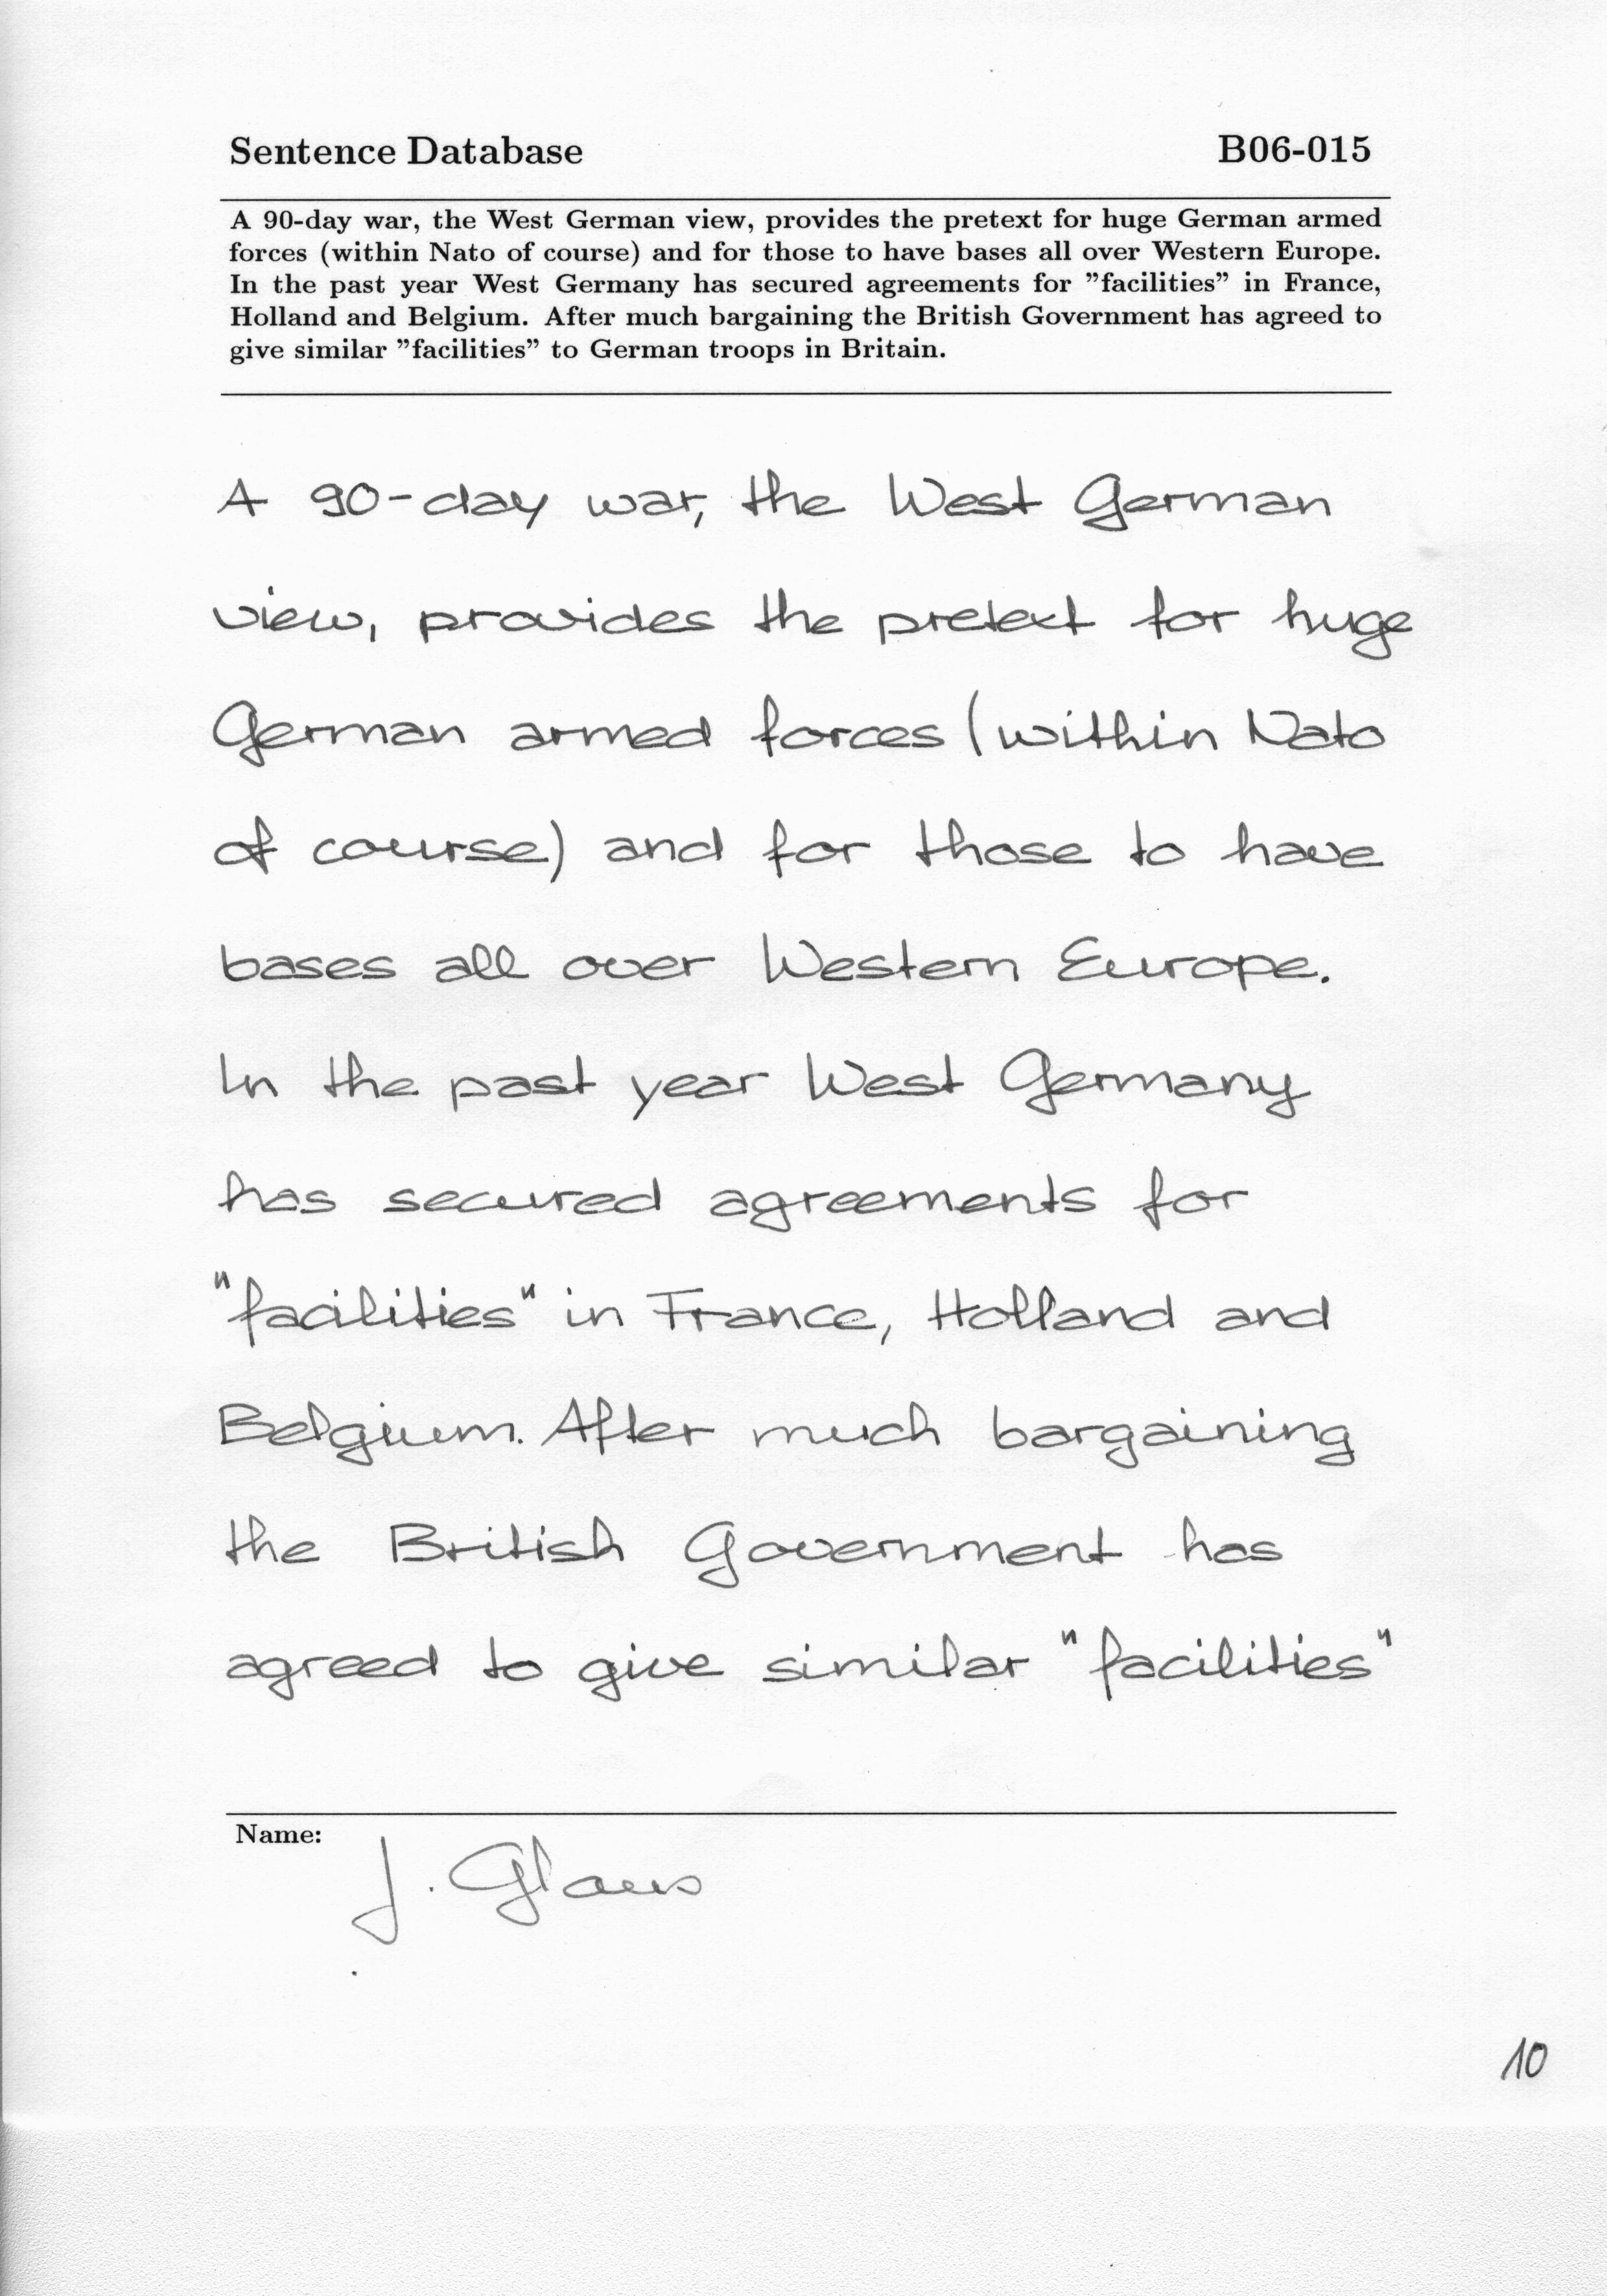 Sentence Database B06-015
A 90-day war, the West German view, provides the pretext for huge German armed
forces (within Nato of course) and for those to have bases all over Western Europe.
In the past year West Germany has secured agreements for ”facilities” in France,
Holland and Belgium. After much bargaining the British Government has agreed to
give similar ”facilities” to German troops in Britain.
A 90-day war, the West German
view, provides the pretext for huge
German armed forces (within Nato
of course) and for those to have
bases all over Western Europe.
In the past year West Germany
has secured agreements for
"facilities" in France, Holland and
Belgium. After much bargaining
the British Government has
agreed to give similar "facilities"
Name:
J. Glaus
10